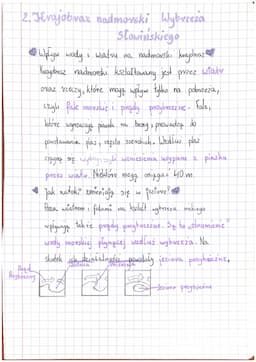 2. Krajobraz nadmorski Wybrzeża
Słowińskiego
Wpływ wody i wiatru na nadmorski krajobraz
Krajobraz nadmorski kształtowany jest przez wiatr
oraz rzeczy, które mają wpływ tylko na pobrzeża,
czyli fale morskie i prądy przybrzeżne. Fale,
które wyrzucają piasek na brzeg, prowadzą do
powstawania plaż, często szerokich. Wzdłuż plaż
ciągną się wzniesienia usypane z piasku
przez wiatr. Niektóre mogą osiągać 40 m.
Jak zatoki zmieniają się w jeziora?
Poza wiatrem i falami na kształt wybrzeża
wpływają także prądy przybrzeżne. Są to "strumienie"
wody morskiej płynącej wzdłuż wybrzeża. Na
skutek ich działalności powstały jeziora przybrzeżne.
Prąd Zatoka Mierzeja
Przybrzeżny
Jezioro przybrzeżne